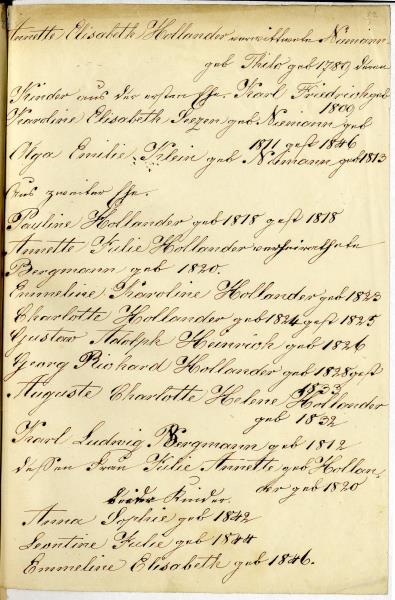 Annette Elisabeth Hollander verwittwete Niemann
geb Thilo geb 1789, deren
Kinder aus der ersten Ehe. Karl Friedrich geb
1809
Karoline Elisabeth Seezen geb Niemann geb
1811 gest 1846
Olga Emilie Klein geb Niemann geb 1813
Aus zweiter Ehe.
Pauline Hollander geb 1818 gest 1818
Annette Julie Hollander verheirathete
Bergmann geb 1820.
Emmeline Karoline Hollander geb 1823
Charlotte Hollander geb 1824 gest 1825
Gustav Adolph Heinrich geb 1826
Georg Richard Hollander geb 1828 gest
1833
Auguste Charlotte Helene Hollander
geb 1832
Karl Ludwig Bergmann geb 1812
dessen Frau Julie Annette geb Hollan-
der geb 1820
Beider Kinder.
Anna Sophie geb 1842
Leontine Julie geb 1844
Emmeline Elisabeth geb 1846.